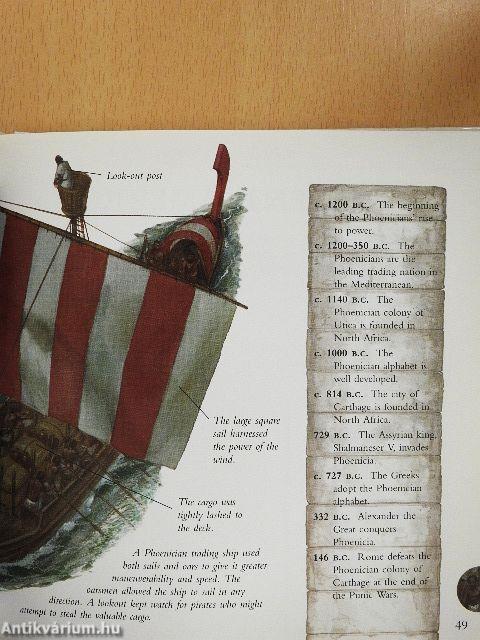 Look-out post
The large square
sail harnessed
the power of the
wind.
The cargo was
tightly lashed to
the deck.
A Phoenician trading ship used
both sails and oars to give it greater
maneuverability and speed. The
oarsmen allowed the ship to sail in any
direction. A lookout kept watch for pirates who might
attempt to steal the valuable cargo.
c. 1200 B.C. The beginning
of the Phoenicians' rise
to power.
c. 1200–350 B.C. The
Phoenicians are the
leading trading nation in
the Mediterranean.
c. 1140 B.C. The
Phoenician colony of
Utica is founded in
North Africa.
c. 1000 B.C. The
Phoenician alphabet is
well developed.
c. 814 B.C. The city of
Carthage is founded in
North Africa.
729 B.C. The Assyrian king,
Shalmaneser V, invades
Phoenicia.
c. 727 B.C. The Greeks
adopt the Phoenician
alphabet.
332 B.C. Alexander the
Great conquers
Phoenicia.
146 B.C. Rome defeats the
Phoenician colony of
Carthage at the end of
the Punic Wars.
49
Antikvárium.hu